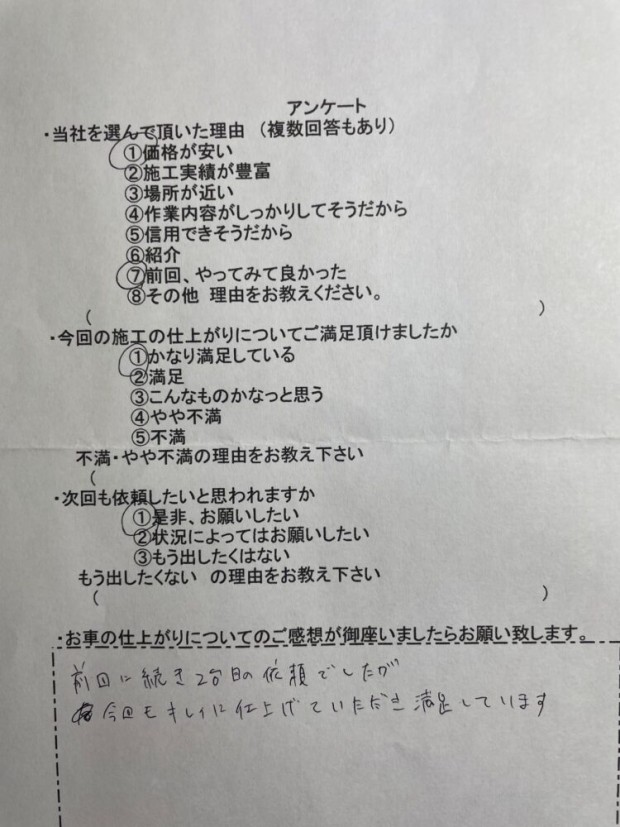 アンケート
・当社を選んで頂いた理由 （複数回答もあり）
①価格が安い
②施工実績が豊富
③場所が近い
④作業内容がしっかりしてそうだから
⑤信用できそうだから
⑥紹介
⑦前回、やってみて良かった
⑧その他 理由をお教えください。
（ ）
・今回の施工の仕上がりについてご満足頂けましたか
①かなり満足している
②満足
③こんなものかなっと思う
④やや不満
⑤不満
不満・やや不満の理由をお教え下さい
（
・次回も依頼したいと思われますか
①是非、お願いしたい
②状況によってはお願いしたい
③もう出したくはない
もう出したくない の理由をお教え下さい
（ ）
・お車の仕上がりについてのご感想が御座いましたらお願い致します。
前回に続き2台目の依頼でしたが
今回もキレイに仕上げていただき満足しています